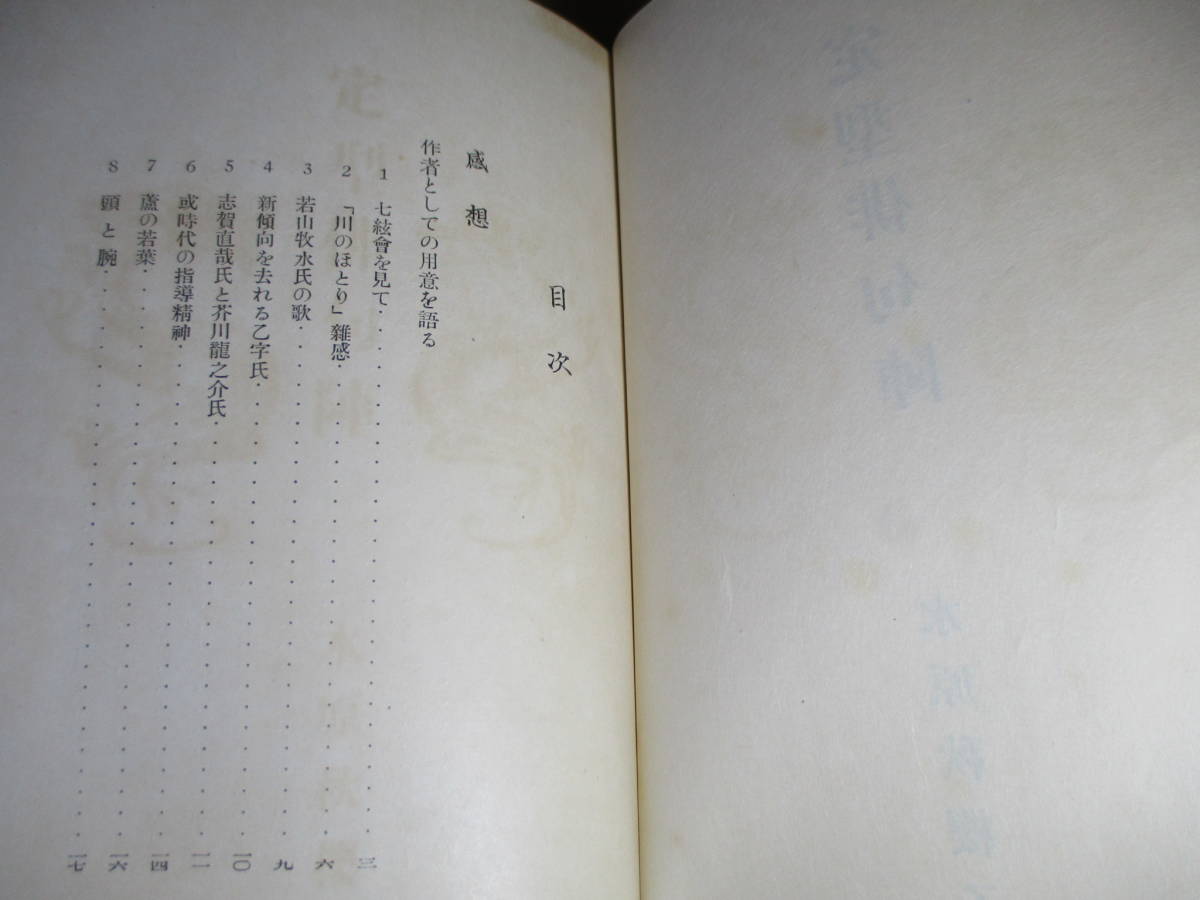 目次
感想
作者としての用意を語る
1 七絃會を見て・・・・・・・・・・三
2 「川のほとり」雜感・・・・・・・・・・六
3 若山牧水氏の歌・・・・・・・・・・九
4 新傾向を去れる乙字氏・・・・・・・・・・一〇
5 志賀直哉氏と芥川龍之介氏・・・・・・・・・・一一
6 或時代の指導精神・・・・・・・・・・一四
7 蘆の若葉・・・・・・・・・・一六
8 頭と腕・・・・・・・・・・一七